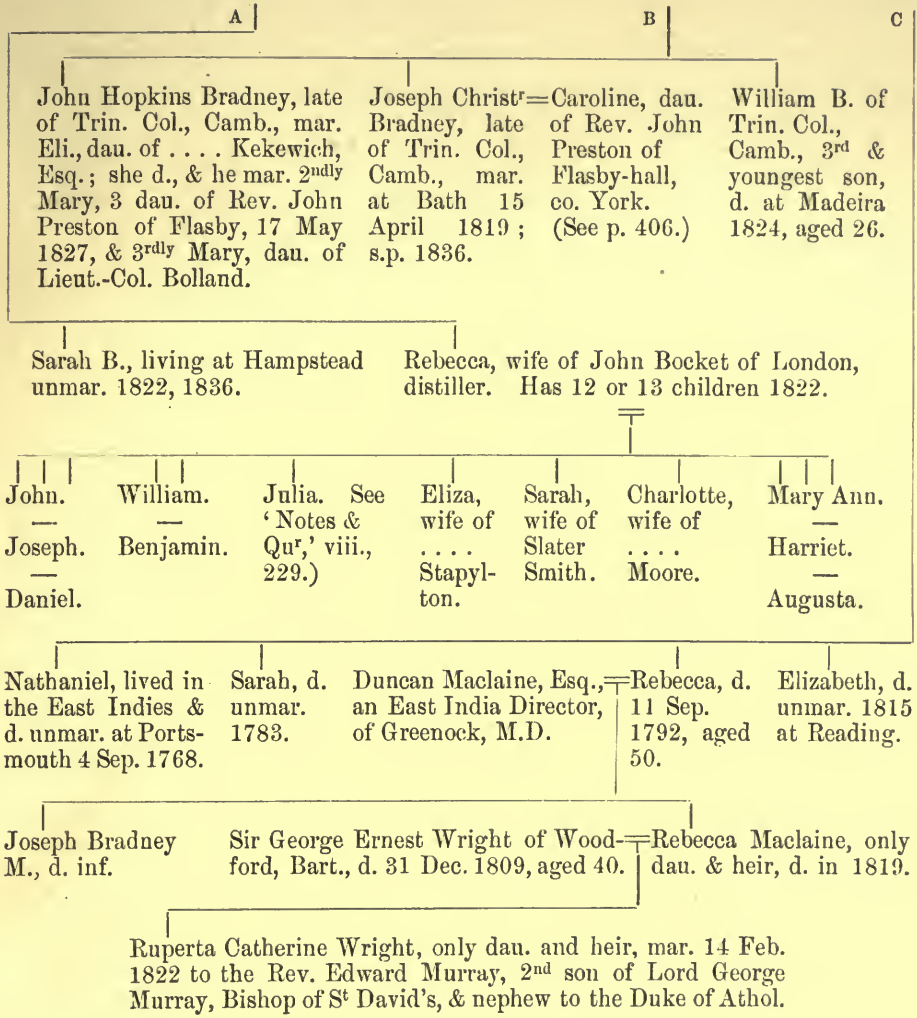 A B C
John Hopkins Bradney, late
of Trin. Col., Camb., mar.
Eli., dau. of .... Kekewich,
Esq.; she d., & he mar. 2ndly
Mary, 3 dau. of Rev. John
Preston of Flasby, 17 May
1827, & 3rdly Mary, dau. of
Lieut.-Col. Bolland.
Joseph Christr=Caroline, dau.
Bradney, late of Rev. John
of Trin. Col., Preston of
Camb., mar. Flasby-hall,
at Bath 15 co. York.
April 1819; (See p. 406.)
s.p. 1836.
William B. of
Trin. Col.,
Camb., 3rd &
youngest son,
d. at Madeira
1824, aged 26.
Sarah B., living at Hampstead
unmar. 1822, 1836.
Rebecca, wife of John Bocket of London,
distiller. Has 12 or 13 children 1822.
John.
—
Joseph.
—
Daniel.
William.
—
Benjamin.
Julia. See
‘Notes &
Qur,’ viii.,
229.)
Eliza,
wife of
....
Stapyl-
ton.
Sarah,
wife of
Slater
Smith.
Charlotte,
wife of
....
Moore.
Mary Ann.
—
Harriet.
—
Augusta.
Nathaniel, lived in
the East Indies &
d. unmar. at Ports-
mouth 4 Sep. 1768.
Sarah, d.
unmar.
1783.
Duncan Maclaine, Esq.,=Rebecca, d.
an East India Director, 11 Sep.
of Greenock, M.D. 1792, aged
50.
Elizabeth, d.
unmar. 1815
at Reading.
Joseph Bradney
M., d. inf.
Sir George Ernest Wright of Wood-=Rebecca Maclaine, only
ford, Bart., d. 31 Dec. 1809, aged 40. dau. & heir, d. in 1819.
Ruperta Catherine Wright, only dau. and heir, mar. 14 Feb.
1822 to the Rev. Edward Murray, 2nd son of Lord George
Murray, Bishop of St David's, & nephew to the Duke of Athol.